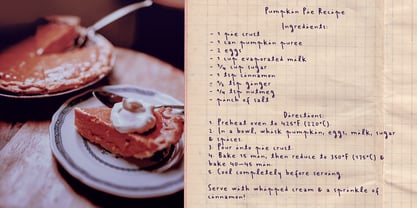 Pumpkin Pie Recipe
Ingredients:
- 1 pie crust
- 1 can pumpkin puree
- 2 eggs
- 1 cup evaporated milk
- 3/4 cup sugar
- 1 tsp cinnamon
- 1/2 tsp ginger
- 1/4 tsp nutmeg
- pinch of salt
Directions:
1. Preheat oven to 425°F (220°C).
2. In a bowl, whisk pumpkin, eggs, milk, sugar
& spices.
3. Pour into pie crust.
4. Bake 15 min, then reduce to 350°F (175°C) &
bake 40-45 min.
5. Cool completely before serving.
Serve with whipped cream & a sprinkle of
cinnamon!